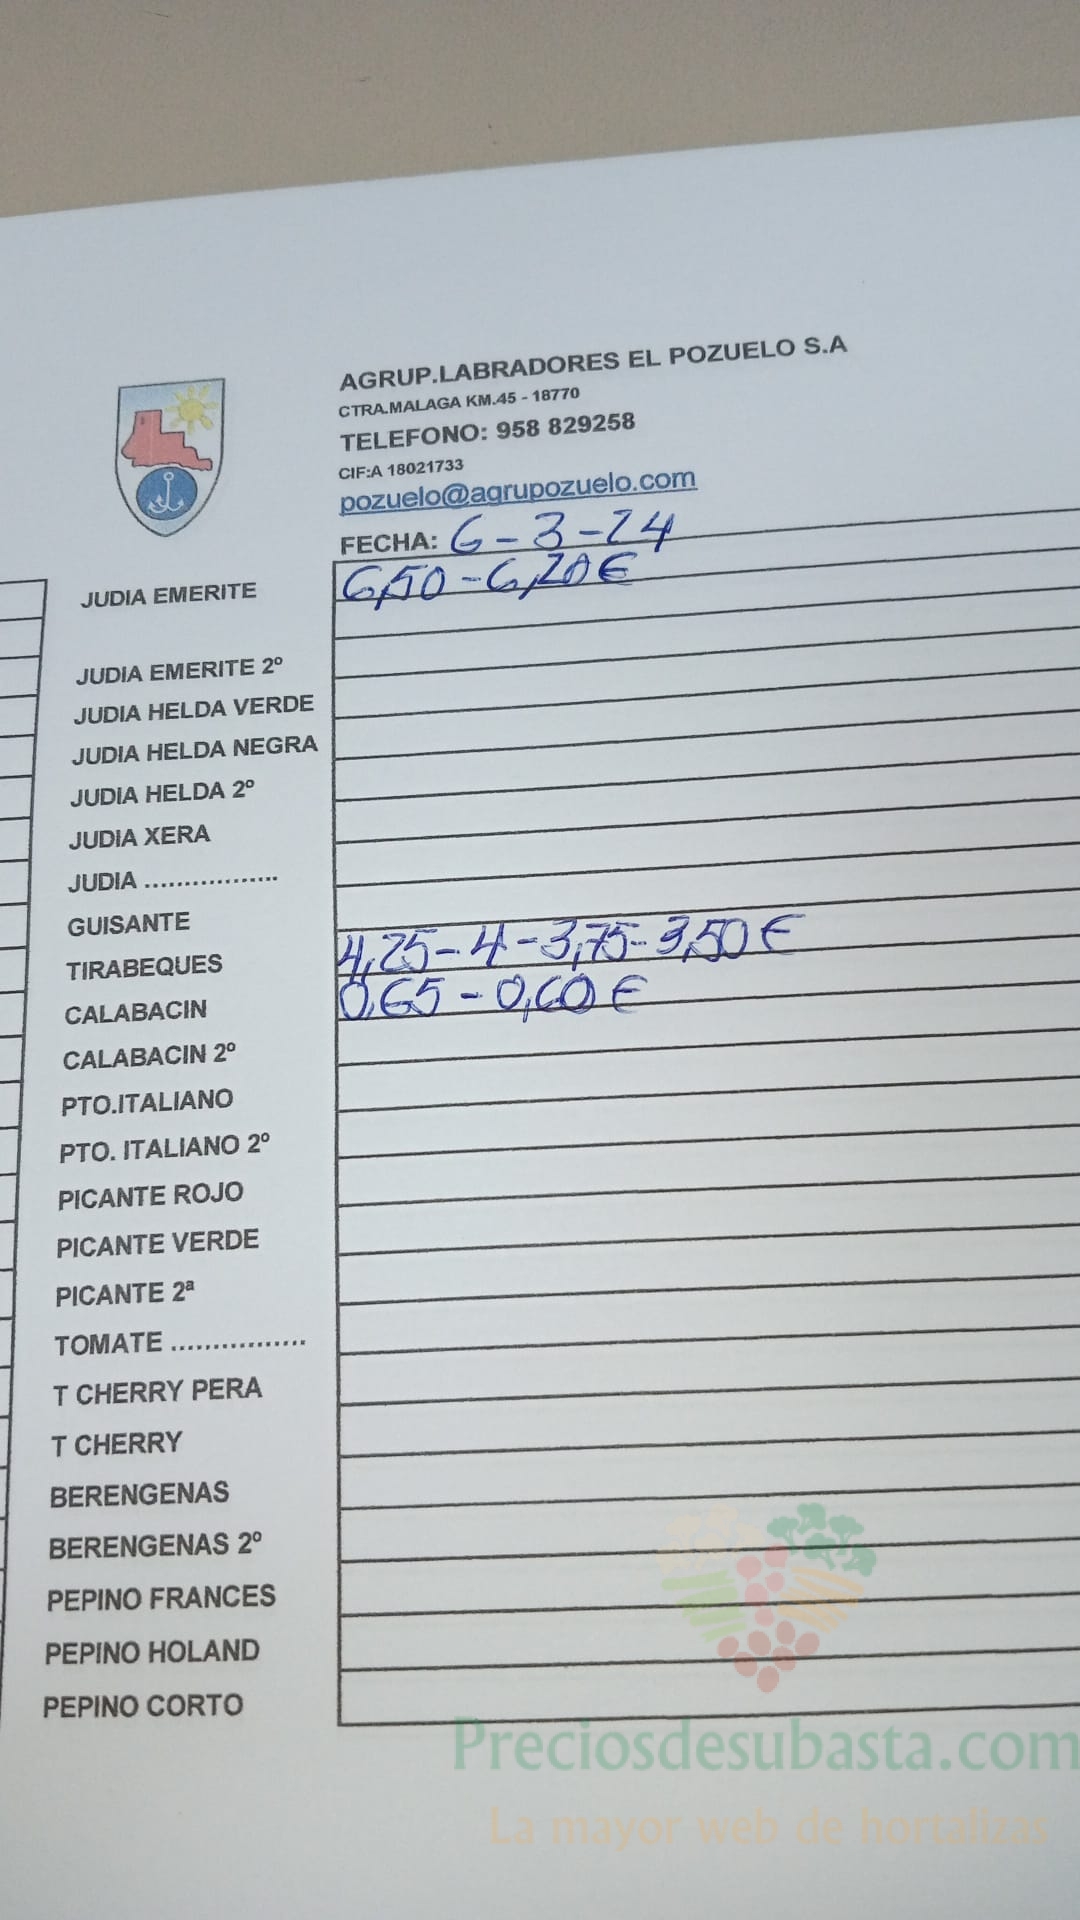 AGRUP.LABRADORES EL POZUELO S.A
CTRA.MALAGA KM.45 - 18770
TELEFONO: 958 829258
CIF:A 18021733
pozuelo@agrupozuelo.com
FECHA: 6-3-24
JUDIA EMERITE 6,50-6,20€
JUDIA EMERITE 2º
JUDIA HELDA VERDE
JUDIA HELDA NEGRA
JUDIA HELDA 2º
JUDIA XERA
JUDIA .................
GUISANTE
TIRABEQUES 4,25-4-3,75-3,50€
CALABACIN 0,65-0,60€
CALABACIN 2º
PTO.ITALIANO
PTO. ITALIANO 2º
PICANTE ROJO
PICANTE VERDE
PICANTE 2ª
TOMATE .................
T CHERRY PERA
T CHERRY
BERENGENAS
BERENGENAS 2º
PEPINO FRANCES
PEPINO HOLAND
PEPINO CORTO
Preciosdesubasta.com
La mayor web de hortalizas